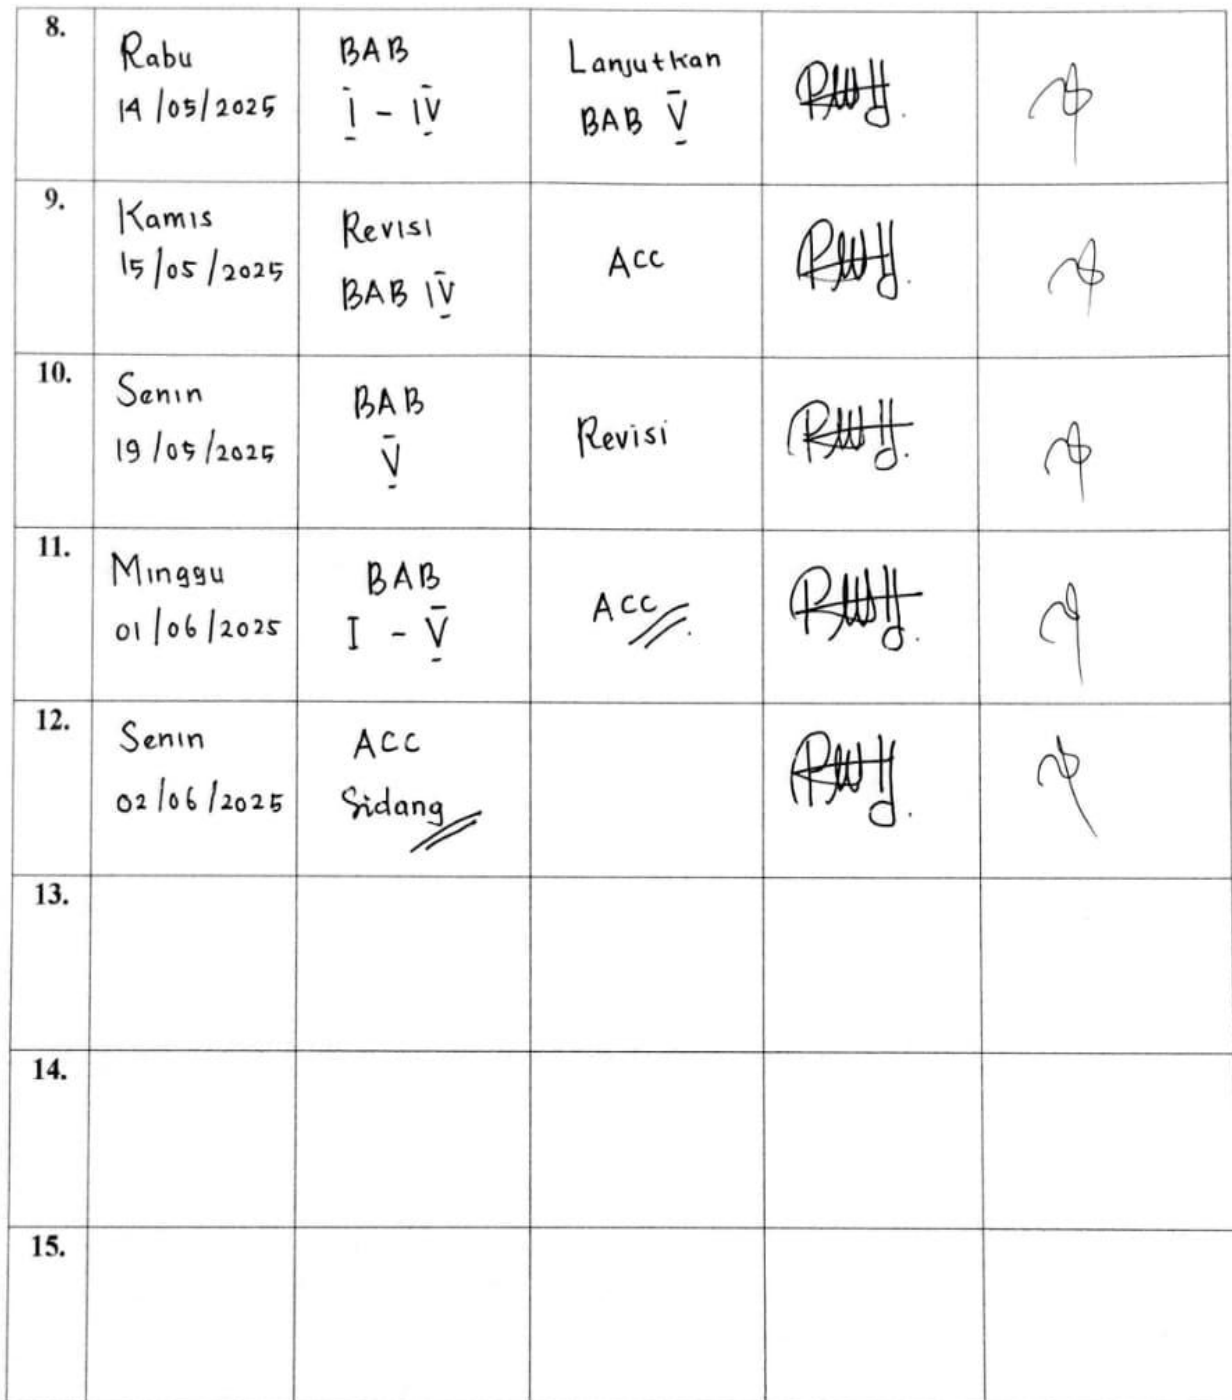 8.
Rabu
14/05/2025
BAB
I - IV
Lanjutkan
BAB V
9.
Kamis
15/05/2025
Revisi
BAB IV
ACC
10.
Senin
19/05/2025
BAB
V
Revisi
11.
Minggu
01/06/2025
BAB
I - V
ACC
12.
Senin
02/06/2025
ACC
Sidang
13.
14.
15.